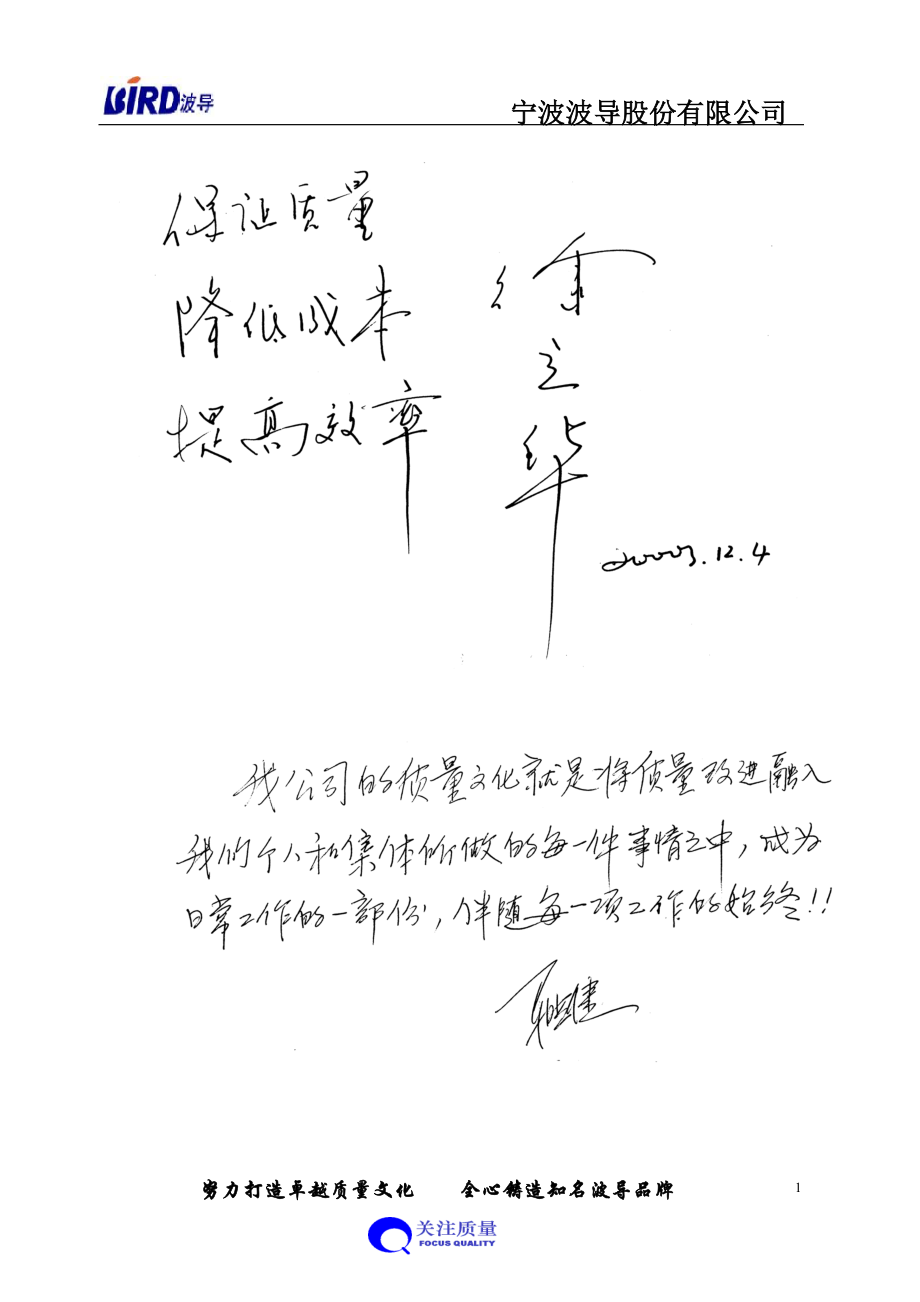 BiRD波导
宁波波导股份有限公司
保证质量
降低成本
提高效率
徐立华
2003.12.4
我公司的质量文化就是将质量改进融入
我的个人和集体所做的每一件事情之中，成为
日常工作的一部份，伴随每一项工作的始终!!
努力打造卓越质量文化 全心铸造知名波导品牌 1
关注质量
FOCUS QUALITY